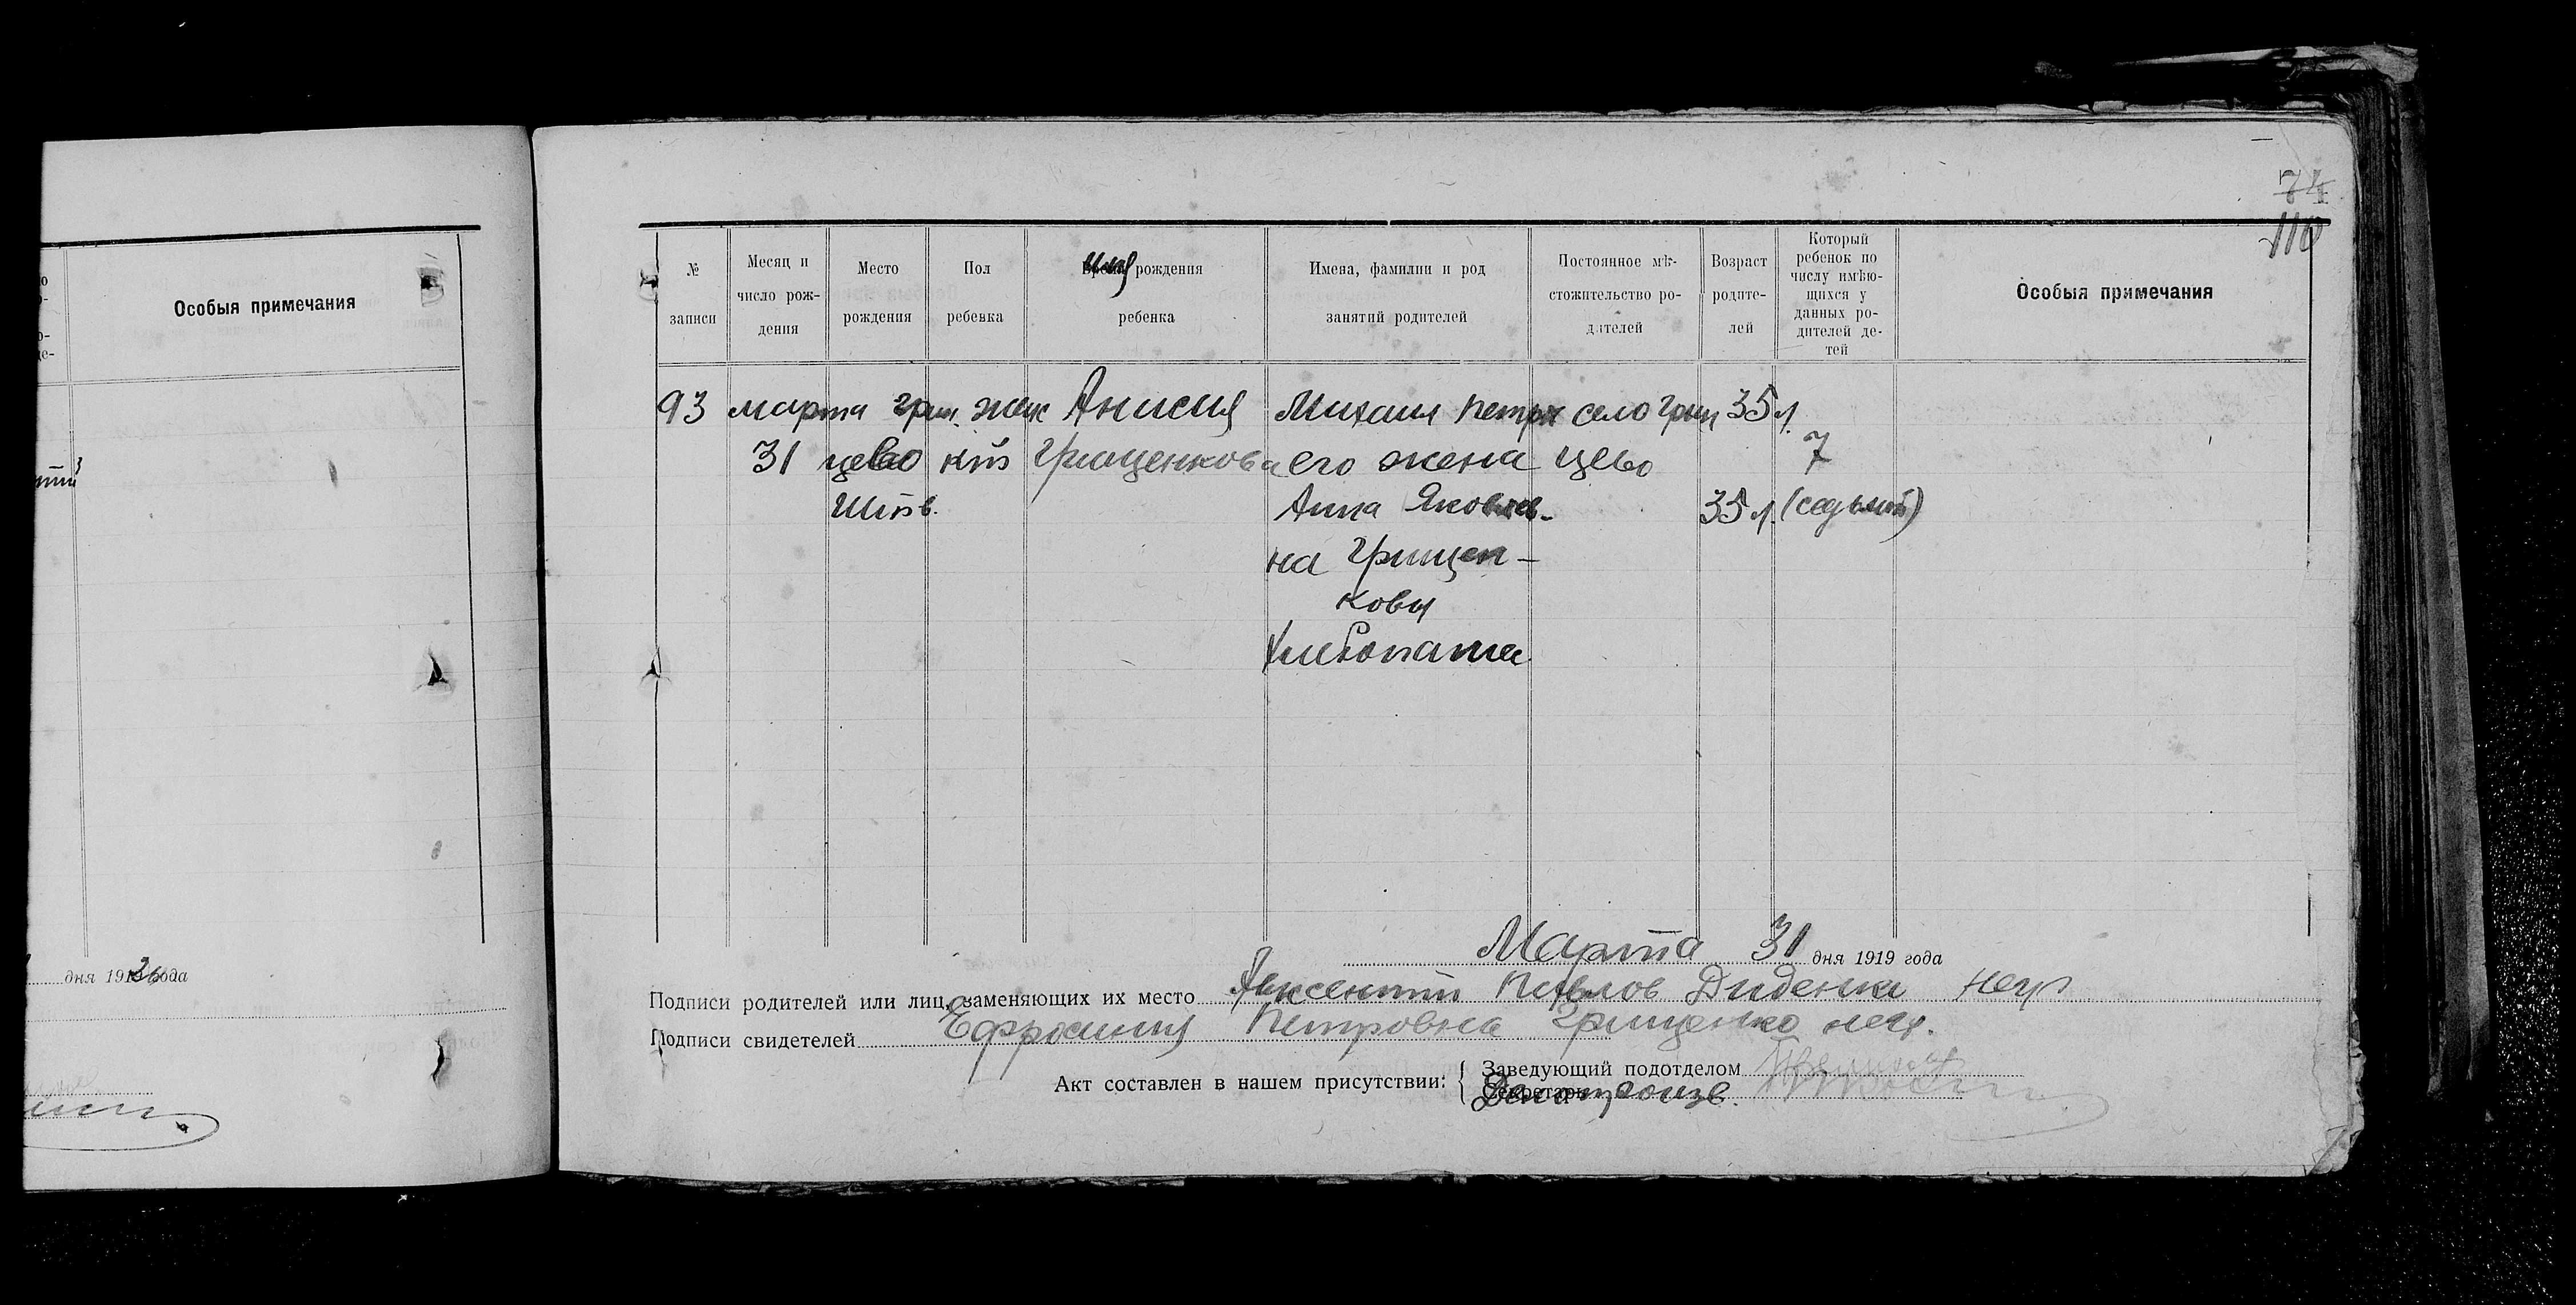 Особыя примечания
дня 191 года
74
110
№ записи
Месяц и число рождения
Место рождения
Пол ребенка
имя рождения ребенка
Имена, фамилии и род занятий родителей
Постоянное мѣстожительство родителей
Возраст родителей
Который ребенок по числу имѣющихся у данных родителей детей
Особыя примечания
93 марта гри. женс Анисия Михаил Петр село Гри 35 л.
31 цево кій Грищенкова его жена цево 7
Анна Яковлев- 35 л. (седьмой)
на Грищен-
ковы
Хлебопашец
Марта 31 дня 1919 года
Подписи родителей или лиц, заменяющих их место Авксентий Павлов Диденко негр
Подписи свидетелей Ефросиния Петровна Грищенко негр.
Акт составлен в нашем присутствии: Заведующий подотделом
Секретарь Делопроизв.